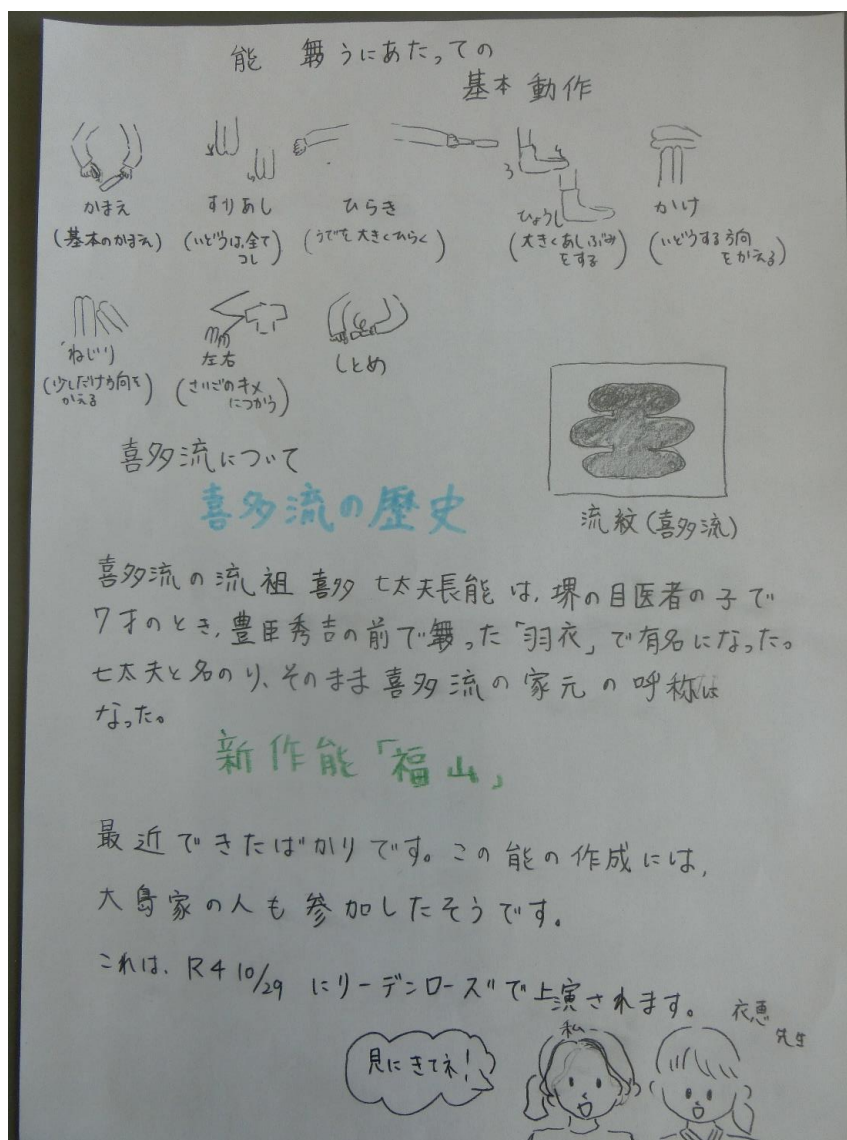 能 舞うにあたっての
基本動作
かまえ
(基本のかまえ)
すりあし
(いどうは、全て
コレ)
ひらき
(うでを大きくひらく)
ひょうし
(大きくあしぶみ
をする)
かけ
(いどうする方向
をかえる)
ねじり
(少しだけ方向を
かえる)
左右
(さいごのキメ
につかう)
しとめ
流紋(喜多流)
喜多流について
喜多流の歴史
喜多流の流祖 喜多 七太夫長能は、堺の目医者の子で
7才のとき、豊臣秀吉の前で舞った「羽衣」で有名になった。
七太夫と名のり、そのまま喜多流の家元の呼称は
なった。
新作能「福山」
最近できたばかりです。この能の作成には、
大島家の人も参加したそうです。
これは、R4 10/29 にリーデンローズで上演されます。
見にきてネ!
私
衣恵
先生